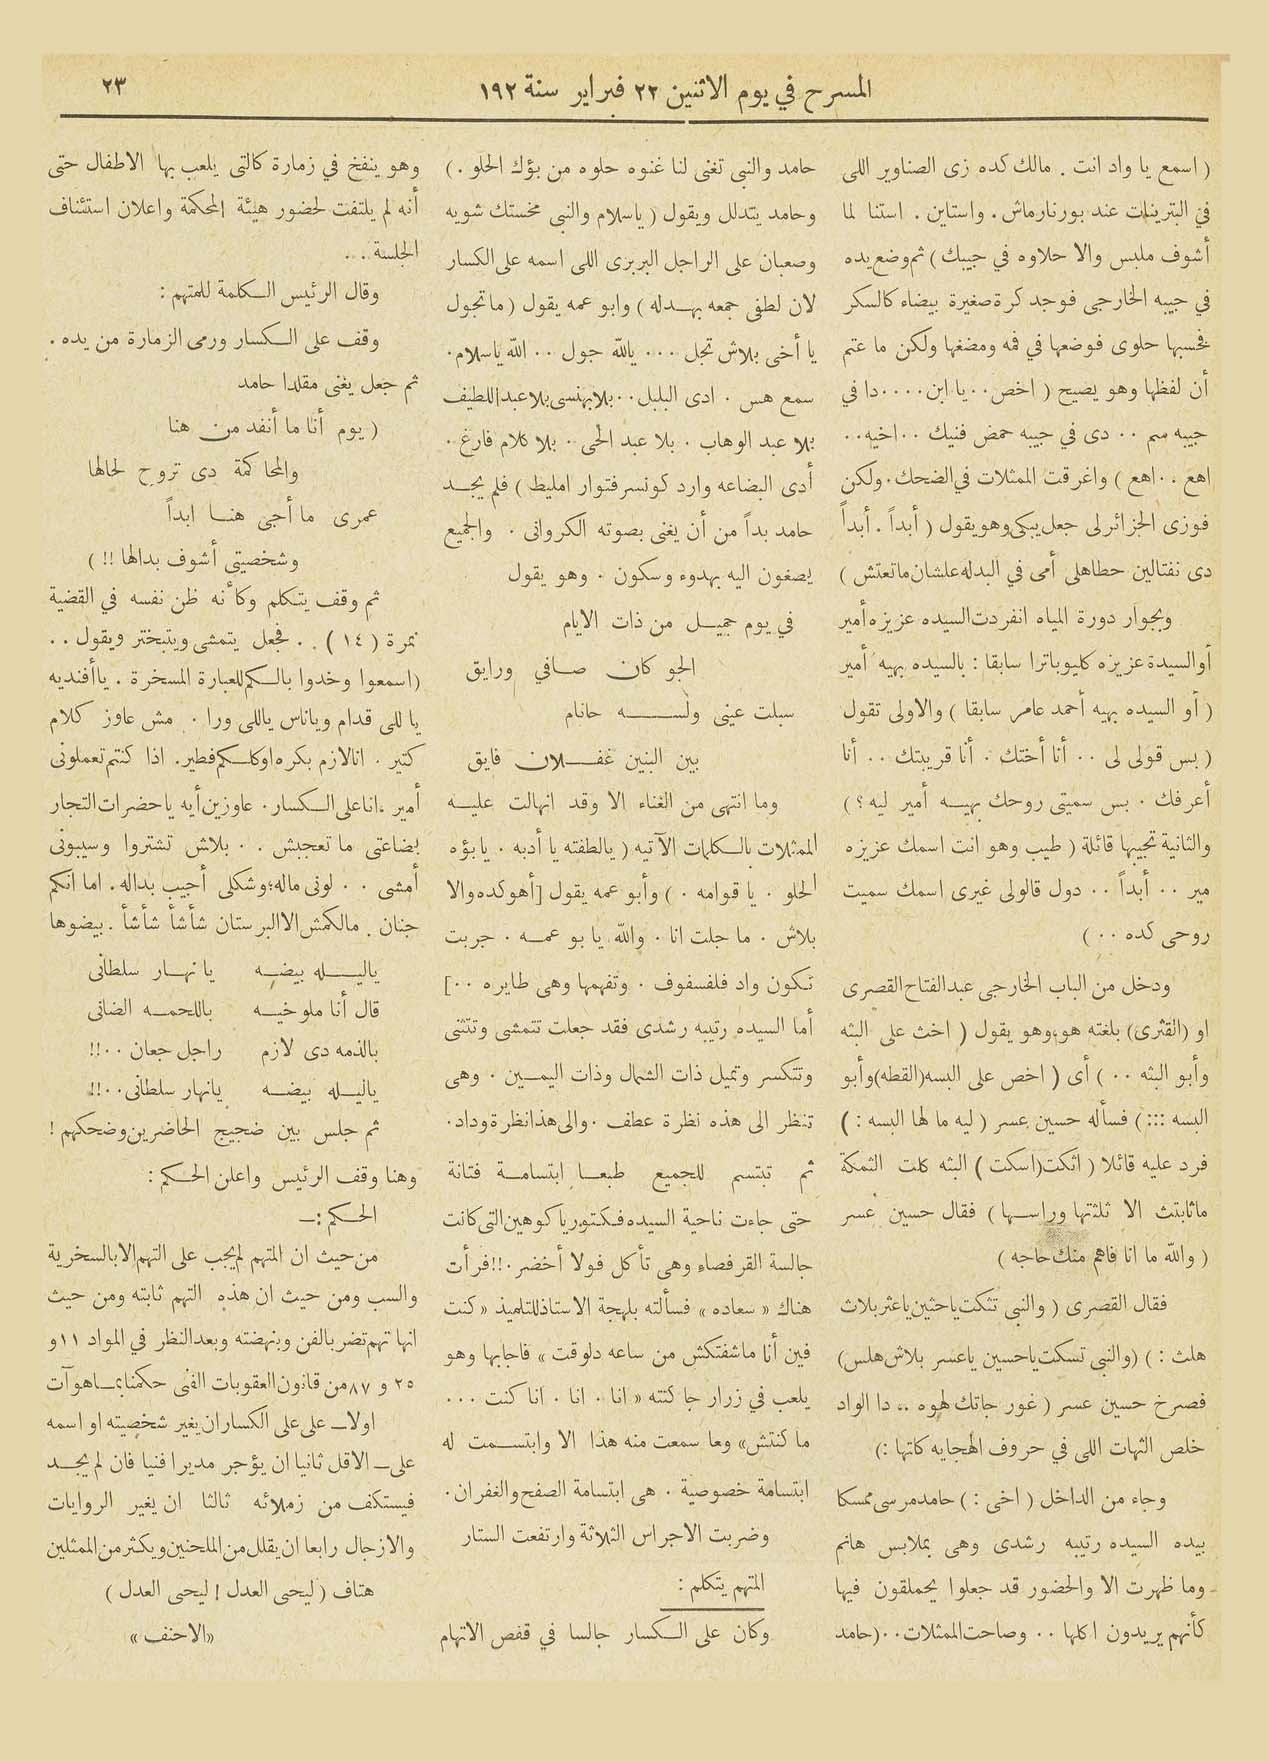 المسرح في يوم الاثنين ٢٢ فبراير سنة ١٩٢
٢٣
( اسمع يا واد انت . مالك كده زى الصناوير اللى
في البترينات عند بورنارماش . واستاين . استنا لما
أشوف ملبس والا حلاوه في جيبك ) ثم وضع يده
في جيبه الخارجى فوجد كرة صغيرة بيضاء كالسكر
فحسبها حلوى فوضعها في فمه ومضغها ولكن ما عتم
أن لفظها وهو يصيح ( اخص . . يا ابن . . . . دا في
جيبه سم . . دى في جيبه حمض فنيك . . اخيه . .
اهع . . اهع ) واغرقت الممثلات في الضحك . ولكن
فوزى الجزائرلى جعل يبكى وهو يقول ( أبداً . أبداً
دى نفتالين حطاهلى أمى في البدله علشان ماتعتش )
وبجوار دورة المياه انفردت السيده عزيزه أمير
أو السيدة عزيزه كليوباترا سابقا : بالسيده بهيه أمير
( أو السيده بهيه أحمد عامر سابقا ) والاولى تقول
( بس قولى لى . . أنا أختك . أنا قريبتك . . أنا
أعرفك . بس سميتى روحك بهيه أمير ليه ؟ )
والثانية تجيبها قائلة ( طيب وهو انت اسمك عزيزه
مير . . أبداً . . دول قالولى غيرى اسمك سميت
روحى كده . . )
ودخل من الباب الخارجى عبدالفتاح القصرى
او (القثرى) بلغته هو، وهو يقول ( اخث على البثه
وأبو البثه . . ) أى ( اخص على البسه (القطه) وأبو
البسه ::: ) فسأله حسين عسر ( ليه ما لها البسه : )
فرد عليه قائلا ( اثكت (اسكت) البثه كلت الثمكة
ماثابتث الا ثلثتها وراسها ) فقال حسين عسر
( والله ما انا فاهم منك حاجه )
فقال القصرى ( والنبى تثكت ياحثين ياعثر بلاث
هلث : ) (والنبى تسكت ياحسين ياعسر بلاش هلس)
فصرخ حسين عسر ( غور جاتك لهوه .. دا الواد
خلص الثهات اللى في حروف الهجايه كاتها : )
وجاء من الداخل ( اخى : ) حامد مرسى ممسكا
بيده السيده رتيبه رشدى وهى بملابس هانم
وما ظهرت الا والحضور قد جعلوا يحملقون فيها
كأنهم يريدون اكلها . . وصاحت الممثلات . . (حامد
حامد والنبى تغنى لنا غنوه حلوه من بؤك الحلو . )
وحامد يتدلل ويقول ( ياسلام والنبى مخستك شويه
وصعبان على الراجل البربرى اللى اسمه على الكسار
لان لطفى جمعه بهدله ) وابو عمه يقول ( ماتجول
يا أخى بلاش تجل . . . يالله جول . . الله ياسلام .
سمع هس . ادى البلبل . . بلا بهنسى بلا عبد اللطيف
بلا عبد الوهاب . بلا عبد الحى . . بلا كلام فارغ .
أدى البضاعه وارد كونسرفتوار امليط ) فلم يجد
حامد بداً من أن يغنى بصوته الكروانى . والجميع
يصغون اليه بهدوء وسكون . وهو يقول
في يوم جميل من ذات الايام
الجو كان صافي ورايق
سبلت عينى ولسه حانام
بين البنين غفلان فايق
وما انتهى من الغناء الا وقد انهالت عليه
الممثلات بالكلمات الآتيه ( يالطفته يا أدبه . يا بؤه
الحلو . يا قوامه . ) وأبو عمه يقول [أهو كده والا
بلاش . ما جلت انا . والله يا بو عمه . جربت
تكون واد فلفسفوف . وتفهمها وهى طايره . . ]
أما السيده رتيبه رشدى فقد جعلت تتمشى وتتثنى
وتتكسر وتميل ذات الشمال وذات اليمين . وهى
تنظر الى هذه نظرة عطف . والى هذا نظرة وداد .
ثم تبتسم للجميع طبعا ابتسامة فتانة
حتى جاءت ناحية السيده فكتوريا كوهين التى كانت
جالسة القرفصاء وهى تأكل فولا أخضر . !! فرأت
هناك « سعاده » فسألته بلهجة الاستاذ للتلميذ « كنت
فين أنا ماشفتكش من ساعه دلوقت » فاجابها وهو
يلعب في زرار جاكتته « انا . انا . انا كنت . . .
ما كنتش » وما سمعت منه هذا الا وابتسمت له
ابتسامة خصوصية . هى ابتسامة الصفح والغفران .
وضربت الاجراس الثلاثة وارتفعت الستار
المتهم يتكلم :
وكان على الكسار جالسا في قفص الاتهام
وهو ينفخ في زمارة كالتى يلعب بها الاطفال حتى
أنه لم يلتفت لحضور هيئة المحكمة واعلان استئناف
الجلسة . .
وقال الرئيس الكلمة للمتهم :
وقف على الكسار ورمى الزمارة من يده .
ثم جعل يغنى مقلدا حامد
( يوم أنا ما أنفد من هنا
والمحاكمة دى تروح لحالها
عمرى ما أجى هنا ابداً
وشخصيتى أشوف بدالها !! )
ثم وقف يتكلم وكأنه ظن نفسه في القضية
نمرة ( ١٤ ) . . فجعل يتمشى ويتبختر ويقول . .
(اسمعوا وخدوا بالكم للعبارة المسخرة . ياأفنديه
يا للى قدام وياناس ياللى ورا . مش عاوز كلام
كتير . انا لازم بكره اوكلكم فطير. اذا كنتم تعملونى
أمير ، انا على الكسار . عاوزين أيه ياحضرات التجار
بضاعتى ما تعجبش . . بلاش تشتروا وسيبونى
أمشى . . لونى ماله؛ وشكلى أجيب بداله . اما انكم
جنان . مالكمش الا البرستان شأشأ شأشأ . بيضوها
ياليله بيضه يا نهار سلطانى
قال أنا ملوخيه باللحمه الضانى
بالذمه دى لازم راجل جعان . . !!
ياليله بيضه يانهار سلطانى . . !!
ثم جلس بين ضجيج الحاضرين وضحكهم !
وهنا وقف الرئيس واعلن الحكم :
الحكم :—
من حيث ان المتهم لم يجب على التهم إلا بالسخرية
والسب ومن حيث ان هذه التهم ثابته ومن حيث
انها تهم تضر بالفن وبنهضته وبعد النظر في المواد ١١ و
٢٥ و ٨٧ من قانون العقوبات الفنى حكمنا بما هو آت
اولا — على على الكسار ان يغير شخصيته او اسمه
على — الاقل ثانيا ان يؤجر مديرا فنيا فان لم يجد
فيستكف من زملائه ثالثا ان يغير الروايات
والازجال رابعا ان يقلل من الملحنين ويكثر من الممثلين
هتاف ( ليحى العدل ! ليحى العدل )
«الاحنف»